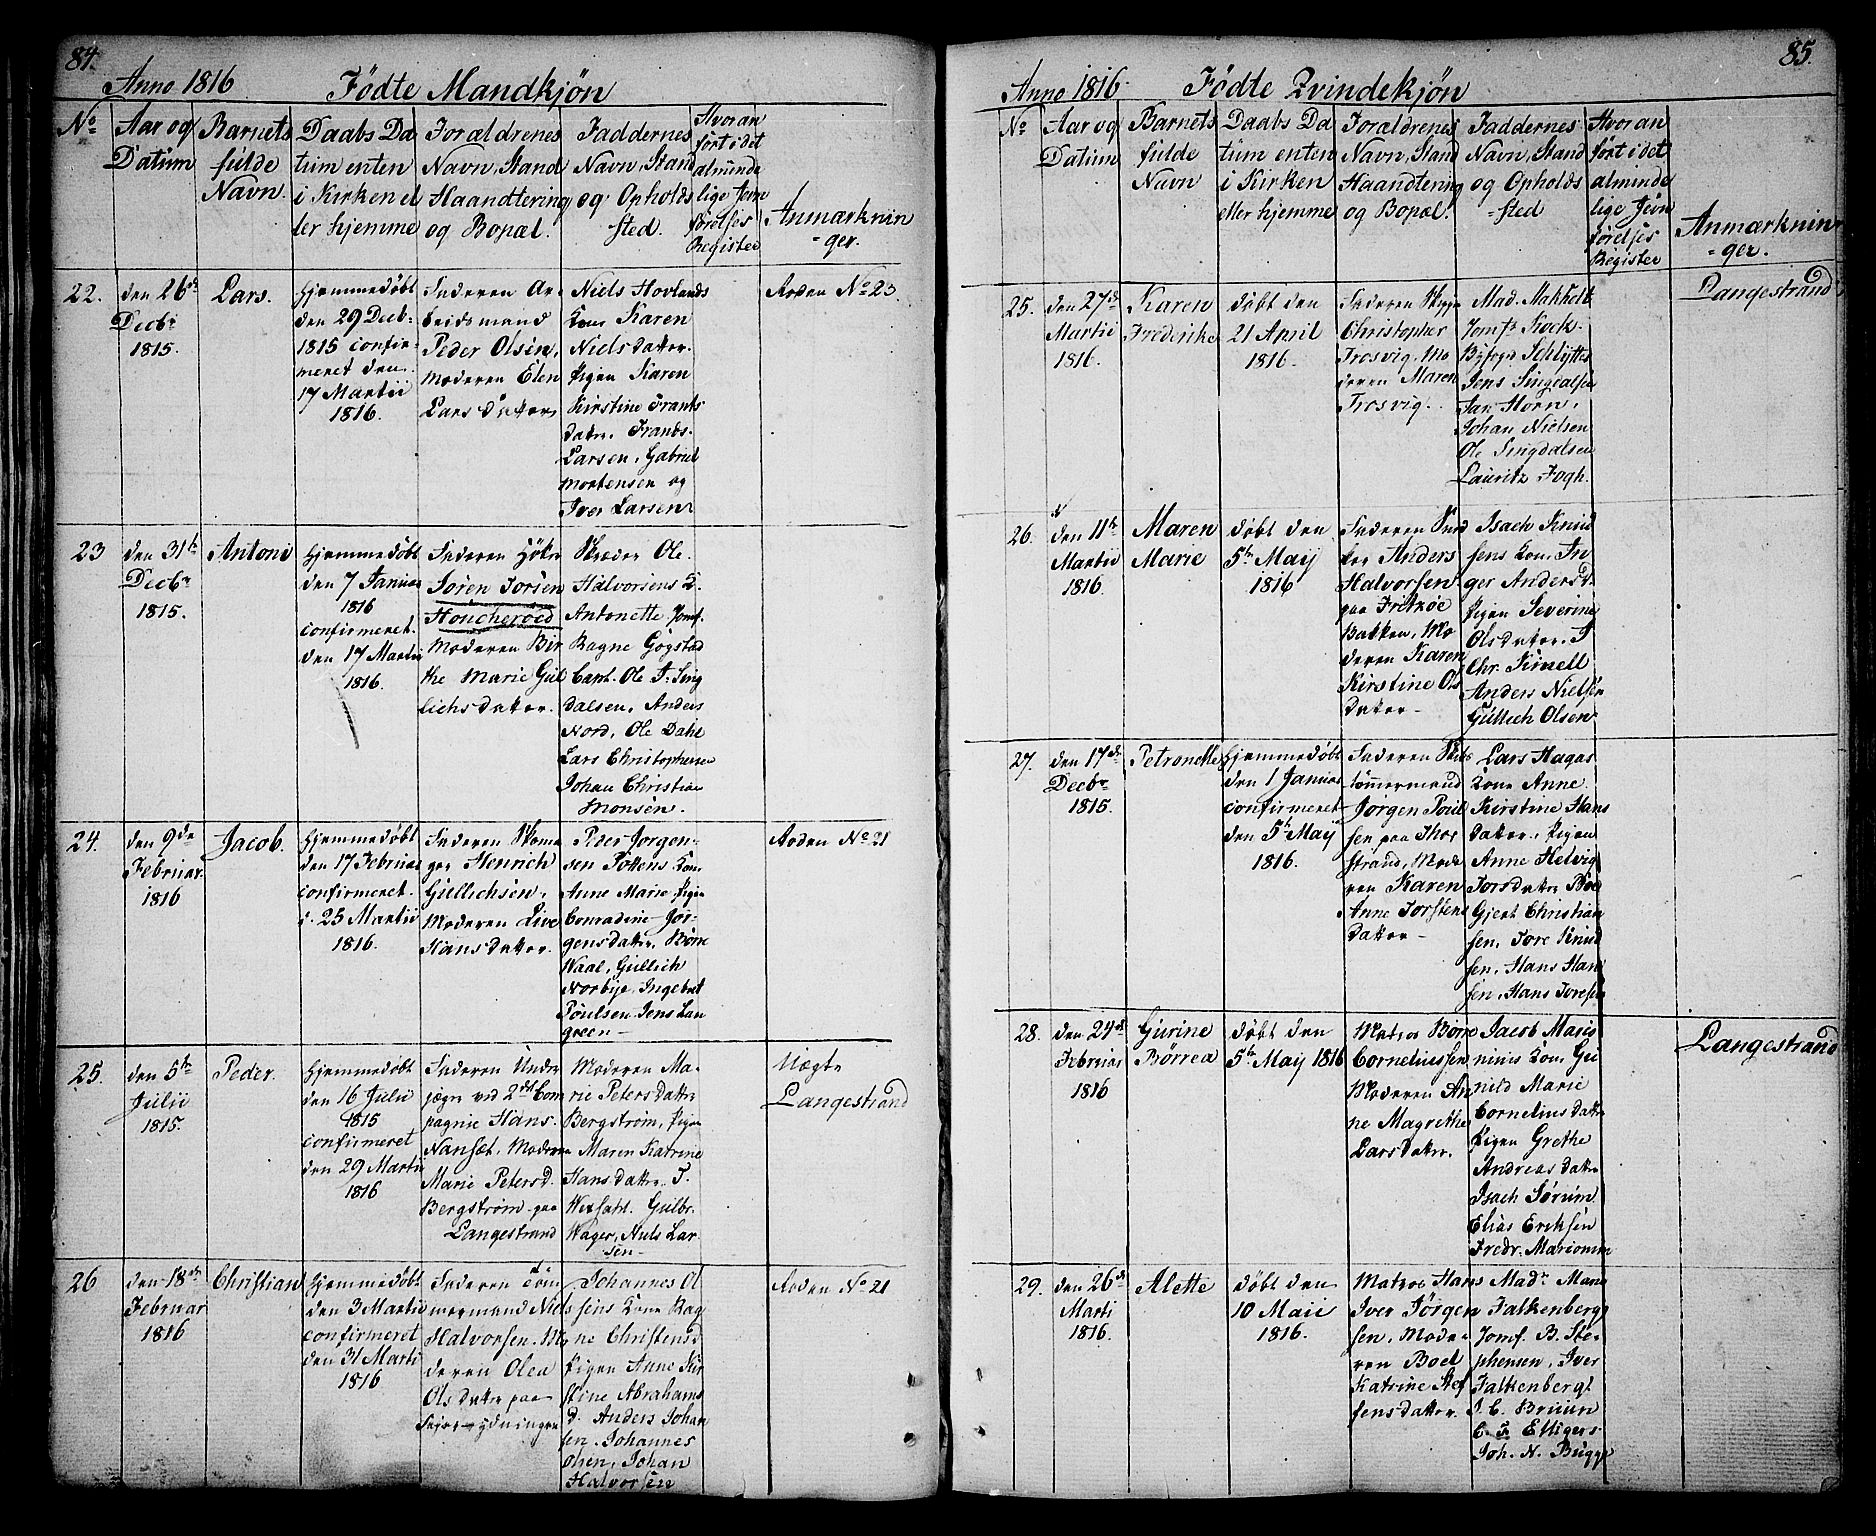 84.
Anno 1816
Fødte Mandkjøn
No
Aar og
Datum
Barnets
fulde
Navn.
Daabs Da
tum enten
i Kirken el
ler hjemme
Forældrenes
Navn, Stand
Haandtering
og Bopæl.
Faddernes
Navn, Stand
og Opholds
sted.
Hvoran
ført i det
alminde
lige Jevn
førelses
Register
Anmærknin
=ger.
22.
den 26de
Decbr
1815.
Lars.
Hjemmedøbt
den 29 Decb.
1815 confir-
meret den
17 Martii
1816.
Faderen Ar
beidsmand
Peder Olsen,
Moderen Elen
Lars datter,
Niels Hovlands
Kone Karen
Nielsdatter.
Pigen Karen
Kirstine Frants
datter, Frants
Larsen, Gabriel
Mortensen og
Iver Larsen
No 23.
23
den 31te
Decbr
1815.
Antoni
Hjemmedøbt
den 7 Januar
1816
confirmeret
den 17 Martii
1816.
Faderen
Soren Iorsen
Houcheroed
Moderen Bir
the Marie Gul
lichsdatter.
Ole
Halvorsens K.
Antonette Jomf.
Ragne Gogstad
Capt. Ole T. Sing
dalsen, Anders
Nord, Ole Dahl
Lars Christophersen
Johan Christian
Monsen.
24.
den 9de
Februar.
1816
Jacob.
Hjemmedøbt
den 17 Februar
confirmeret
d. 25 Martii
1816.
Faderen
Henrich
Gullichsen,
Moderen Live
Hansdatter.
Peder Jorgen-
sen Tottens Kone
Anne Marie, Pigen
Conradine Jør-
gensdatter, Børre
Waal, Gullich
Norbye, Ingebret
Poulsen, Jens Lan
green
No 21
25.
den 5te
Julii
1815.
Peder.
Hjemmedøbt
den 16 Julii
1815
confirmeret
den 29 Martii
1816
Faderen Under
jæger ved 2det Com
pagnie Hans
Nanset, Moderen
Marie Petersd.
Bergstrøm paa
Langestrand
Moderen Ma-
rie Petersdatter
Bergstrøm, Pigen
Maren Katrine
Hansdatter. T.
Wexsahl. Gulbr.
Wager, Niels Lar
sen
Uægte
Langestrand
26
den 18de
Februar
1816
Christian
Hjemmedøbt
den 3 Martii
confirmeret
den 31 Marti
1816
Faderen Tøm
mermand Niels
Halvorsen, Mo
deren Olea
Olsdatter paa
Johannes Ol
sens Kone Rag
ne Christensd
Pigen Anne Kir
stine Abrahams
d. Anders Johan
sen. Johannes
Olsen, Johan
Halvorsen
No 21
85.
Anno 1816.
Fødte Qvindekjøn
No
Aar og
Datum
Barnets
fulde
Navn
Daabs Da
tum enten
i Kirken
eller hjemme
Forældrenes
Navn, Stand
Haandtering
og Bopæl.
Faddernes
Navn, Stand
og Opholds
=sted
Hvoran
ført i det
alminde
lige Jevn
førelses
Register
Anmærknin
=ger.
25.
den 27de
Martii
1816.
Karen
Frederike
døbt den
21 April
1816.
Faderen
Christopher
Trosvig, Mo
deren Maren
Trosvig.
Mad. Makholt
Jomfr Kock.
Byfogd Schlytter
Jens Singdalsen
Jan Horn,
Johan Nielsen
Ole Singdalsen
Lauritz Fogh.
Langestrand
26.
den 11te
Martii
1816.
Maren
Marie
døbt den
5te Maij
1816
Faderen
Anders
Halvorsen
paa Fritzøe
Bakken, Mo
deren Karen
Kirstine Ols
datter
Isach Knud
sens Kone In
ger Andersd.
Pigen Severine
Olsdatter. T
Chr. Kinell
Anders Nielsen
Gullich Olsen
27.
den 17de
Decbr
1815.
Petronette
Hjemmedøbt
den 1 Januar
confirmeret
den 5te Maij
1816.
Faderen
tømmermand
Jorgen Poul
sen paa Thor
strand, Mode
ren Karen
Anne Torstens
datter
Lars Hagas
Kone Anne
Kirstine Hans
datter, Pigen
Anne Helvig
Torsdatter
Gjert Christian
sen, Tore Knud
sen, Hans Han
sen, Hans Toresen
28.
den 24de
Februar
1816
Gurine
Børrea
døbt den
5te Maij 1816
Matros Børre
Corneliussen
Moderen An
ne Magrethe
Larsdatter,
Jacob Maris
minis Kone Gu
nild Marie
Corneliusdatter
Pigen Grethe
Andreasdatter
Isach Sørum
Elias Eriksen
Fredr. Mariomin
Langestrand
29.
den 26de
Marti
1816.
Alette
døbt den
10 Maii
1816.
Matros Hans
Iver Jørgen
sen, Mode-
ren Boel
Katrine Stef
fensdatter
Madr Mane
Falkenberg
Jomf. B. Ste-
phensen, Iver
Falkenbergl
I. C. Bruun
E. F. Ettigers
Joh. N. Bugge